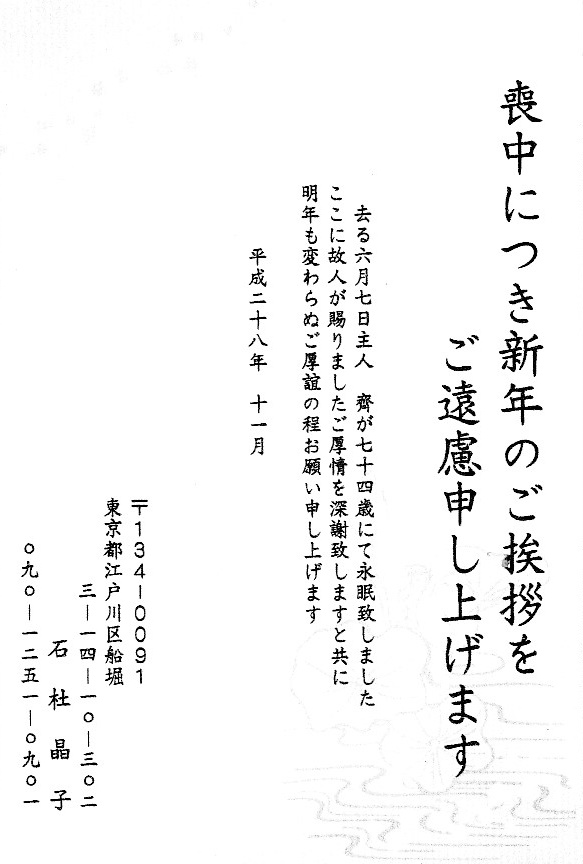 喪中につき新年のご挨拶を
ご遠慮申し上げます
去る六月七日主人　齊が七十四歳にて永眠致しました
ここに故人が賜りましたご厚情を深謝致しますと共に
明年も変わらぬご厚誼の程お願い申し上げます
平成二十八年　十一月
〒134-0091
東京都江戸川区船堀
三―一四―一〇―三〇二
石杜晶子
〇九〇―一二五一―〇九〇一